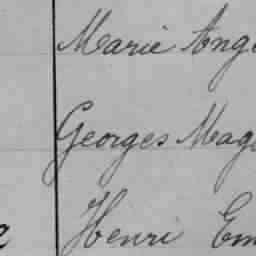 Marie Ang
Georges Mag
Henri Em